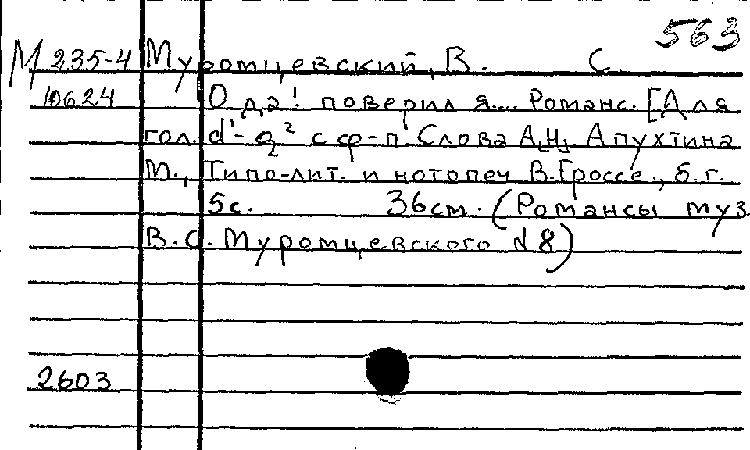 563
М 235-4 Муромцевский, В. С.
10624 О да! поверил я... Романс. [Для
гол. d¹-g² с ф-п Слова А.Н. Апухтина
М., Типо-лит. и нотопеч В. Гроссе, б. г.
5с. 36см. (Романсы муз
В. С. Муромцевского № 8)
2603